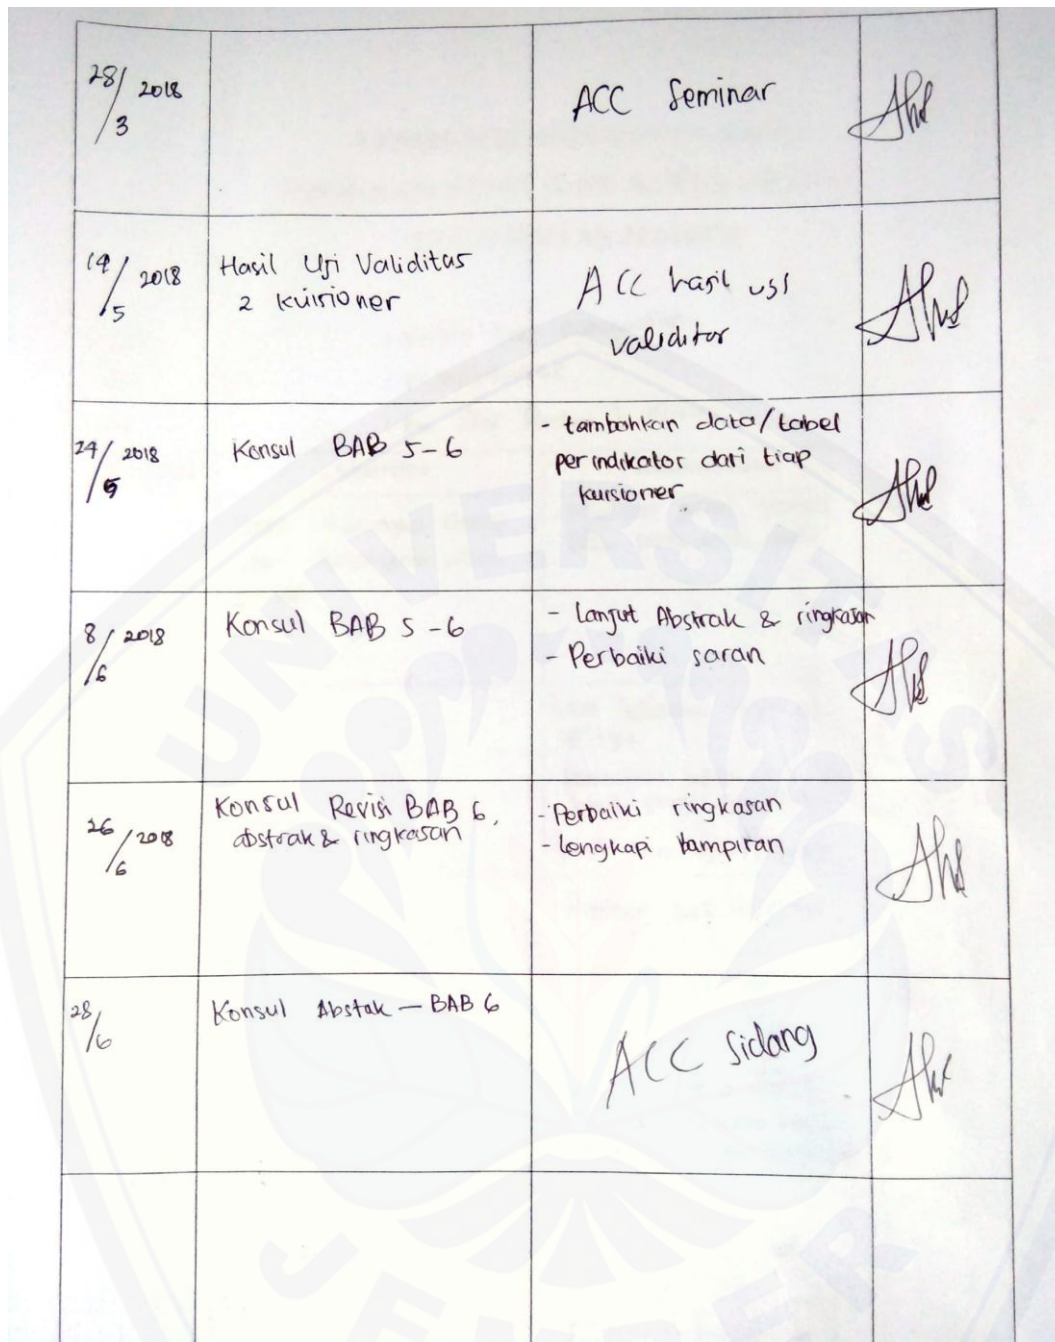 28/3 2018
ACC Seminar
19/5 2018
Hasil Uji Validitas
2 kuisioner
ACC hasil usi
validitor
24/5 2018
Konsul BAB 5-6
- tambahkan data/tabel
per indikator dari tiap
kuisioner
8/6 2018
Konsul BAB 5-6
- Lanjut Abstrak & ringkasan
- Perbaiki saran
26/6 2018
Konsul Revisi BAB 6,
abstrak & ringkasan
- Perbaiki ringkasan
- lengkapi lampiran
28/6
Konsul Abstak - BAB 6
ACC Sidang
UNIVERSITAS
JEMBER